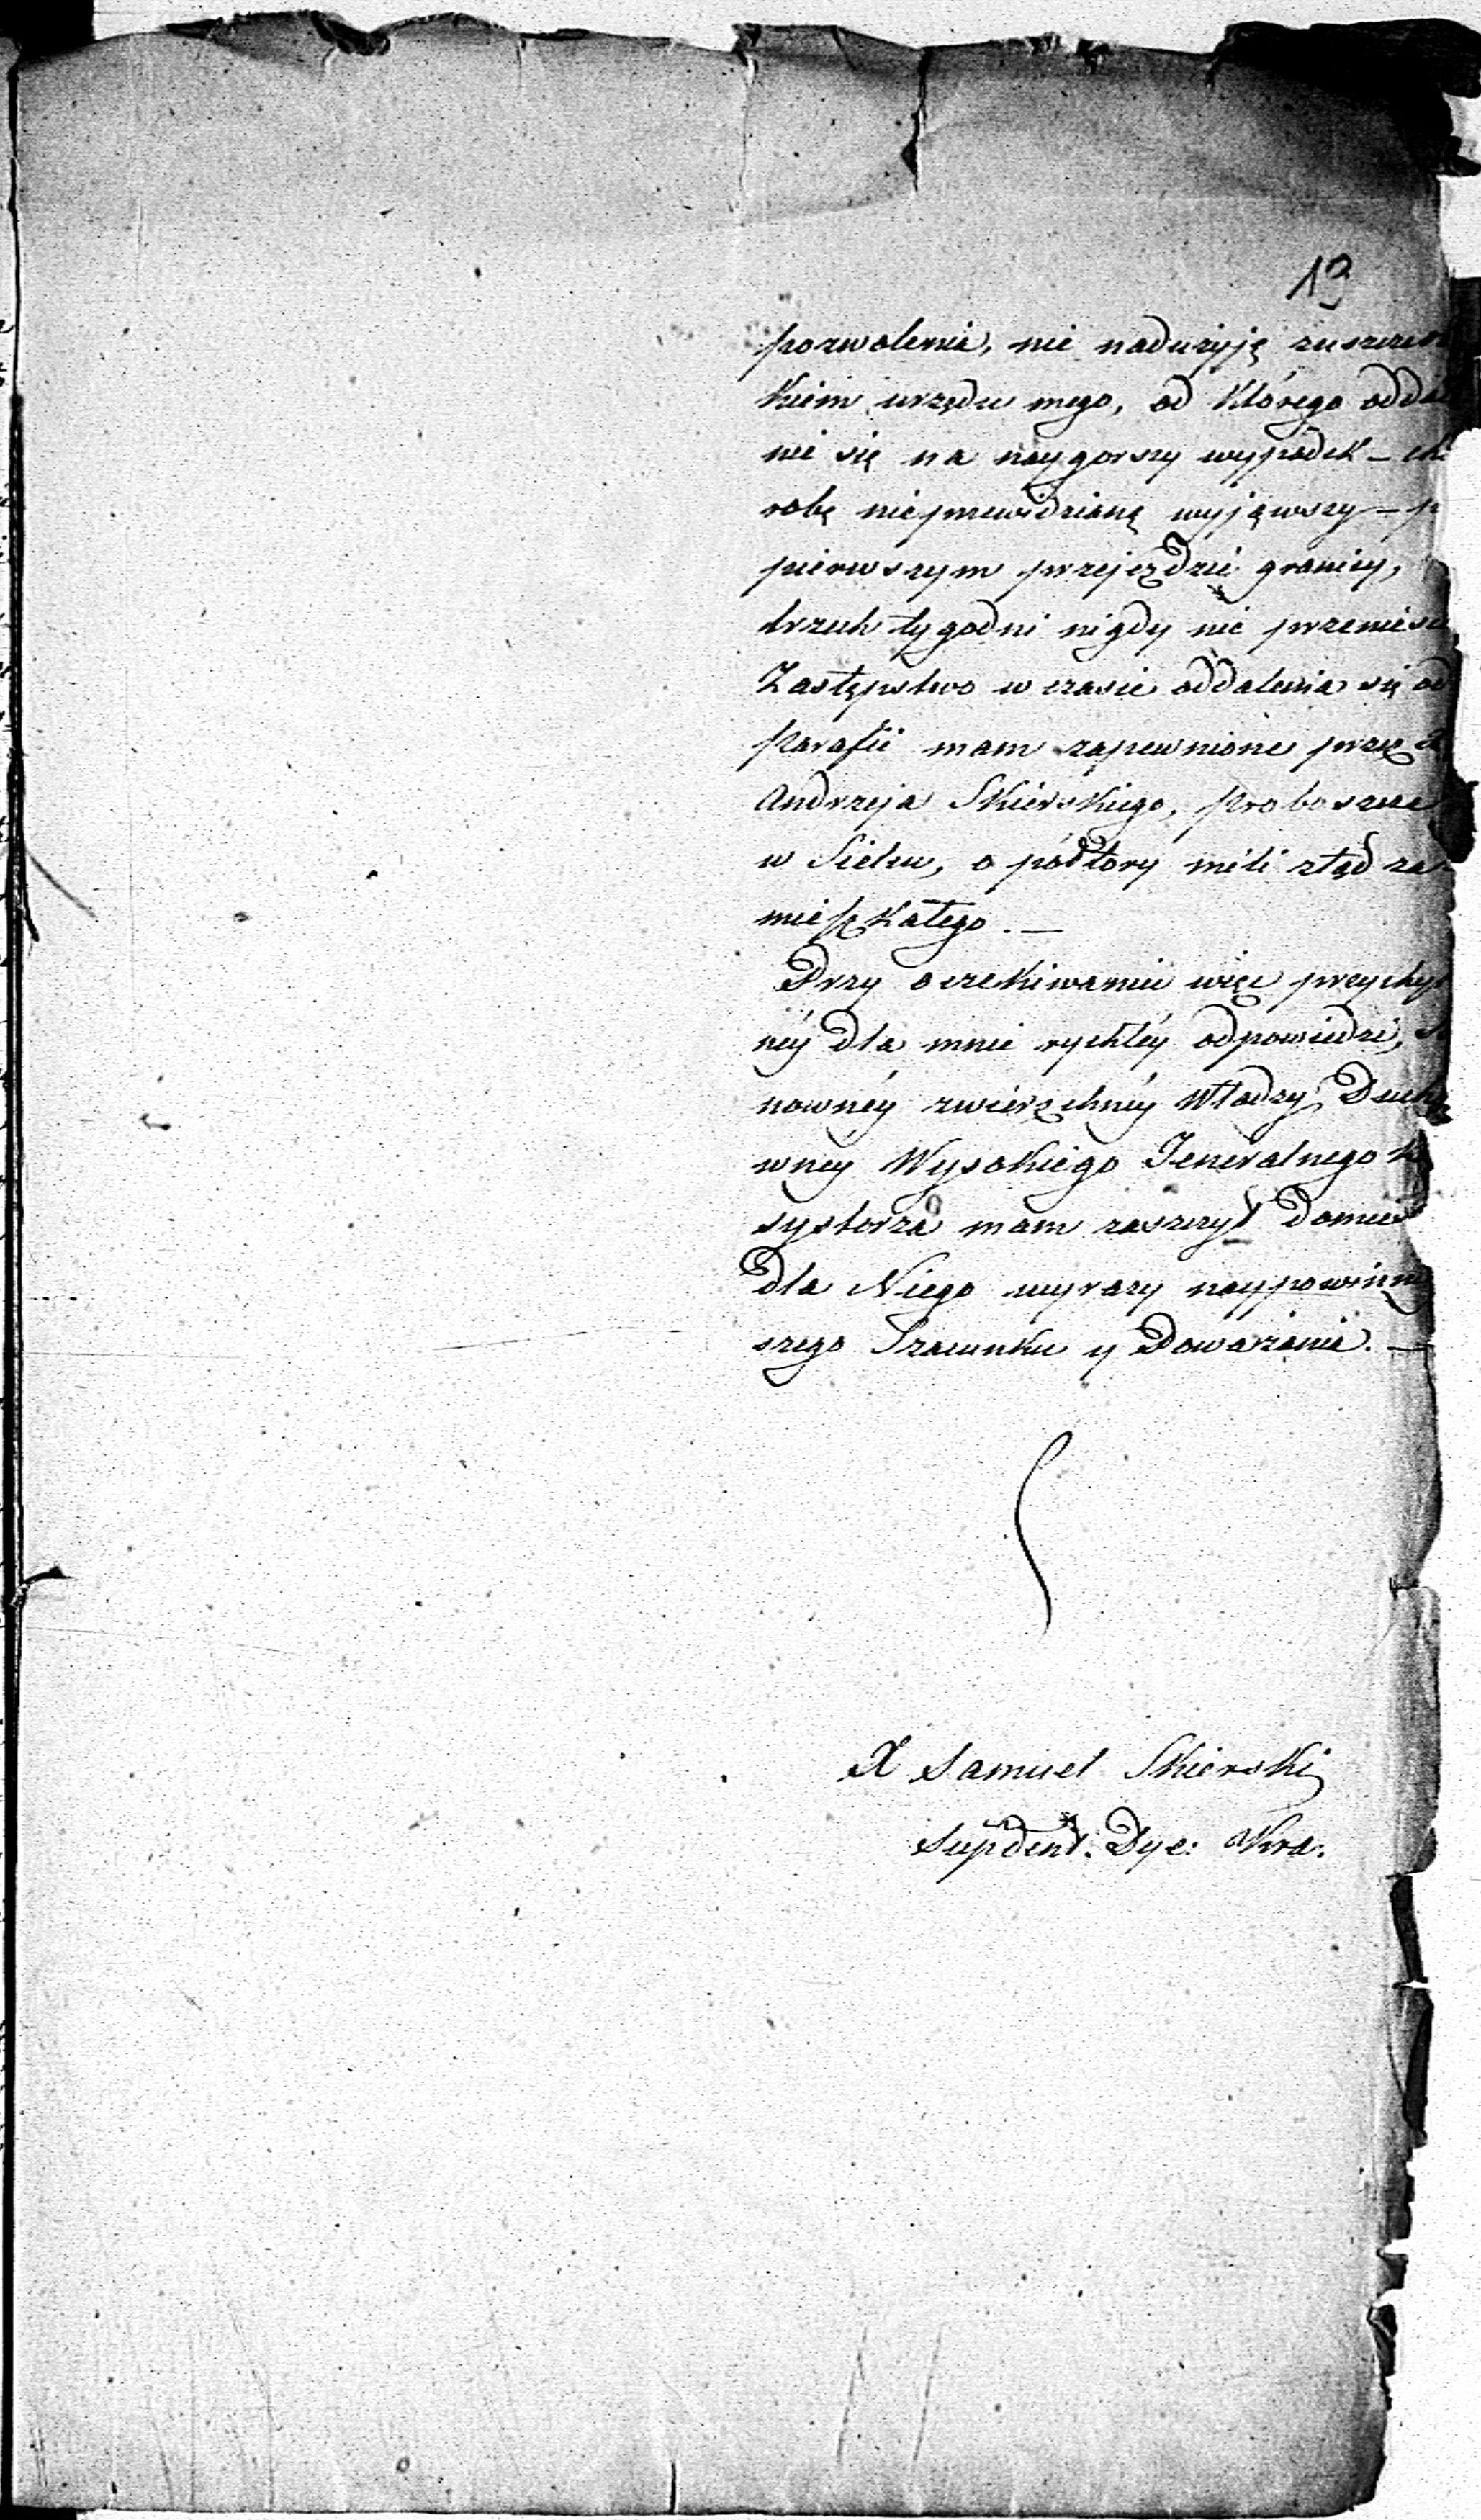 13
pozwolenia, nie nadużyję
kiem urzędu mego, od którego
nie się na naygorszy wypadek –
robę nieprzewidzianę wyjąwszy –
pierwszym przejęździe granicy,
trzech tygodni nigdy nie
Zastępstwo w czasie oddalenia się od
Parafii mam zapewnione przez
Andrzeja Skierskiego, Proboszcza
w Sielcu, o półtory mili ztąd za-
mieszkałego. —
Przy oczekiwaniu więc przychyl
néy dla mnie rychłéy odpowiedzi,
nownéy zwierzchnéy Władzy Ducho
wney Wysokiego Jeneralnego
systorza mam zaszczyt
dla Niego wyrazy naypowinny
szego Szacunku y Poważania. —
X Samuel Skierski
Supdent. Dye: Kra.